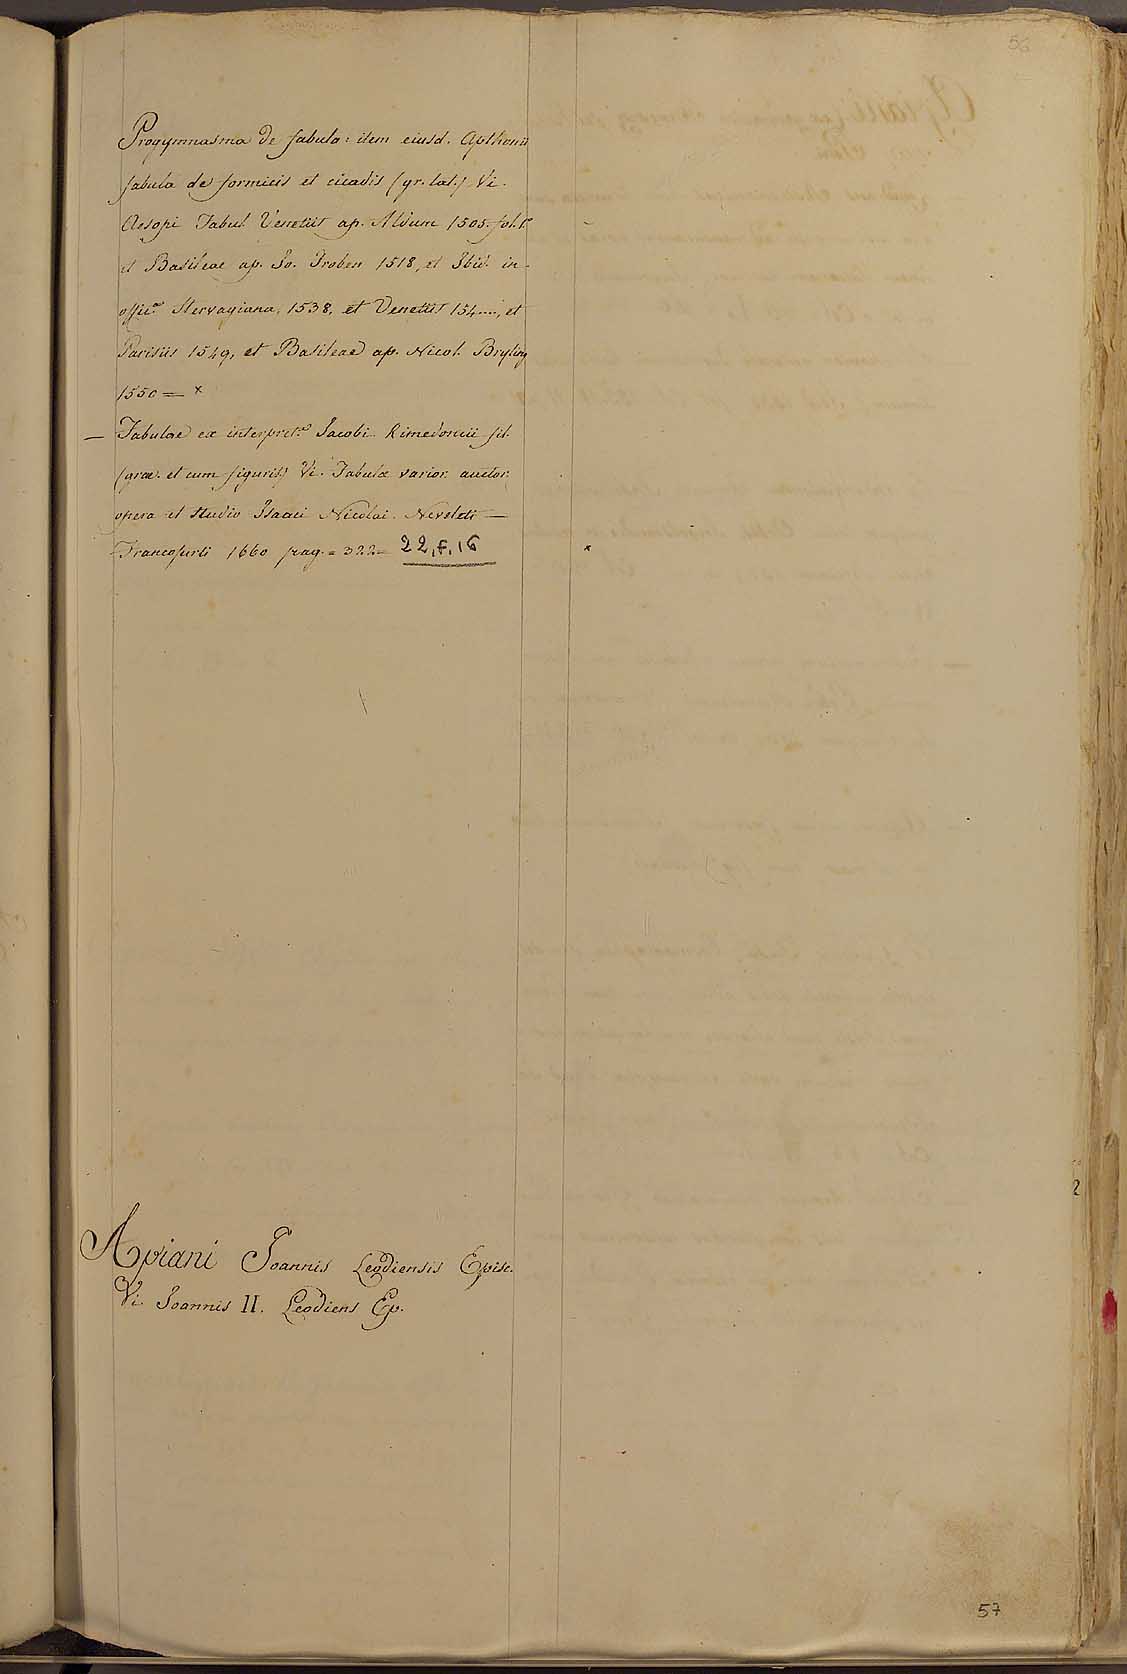 56
Progymnasma de fabula: item eiusd. Apthonii
fabula de formicis et cicadis (gr. lat.) Vi.
Aesopi Fabul. Venetiis ap. Aldum 1505. fol.
et Basileae ap. Jo. Froben 1518, et Ibid. in
offic.ª Hervagiana, 1538, et Venetiis 154...., et
Parisiis 1549, et Basileae ap. Nicol. Bryling
1550 = x
— Fabulae ex interpret.e Jacobi Kimedoncii fil.
(grae. et cum figuris) Vi. Fabulae varior. auctor.
opera et studio Isaaci Nicolai Neveleti —
Francofurti 1660 pag. = 322 = 22.f.16
Apiani Joannis Leodiensis Episc.
Vi. Joannis II. Leodiens Ep.
2
57